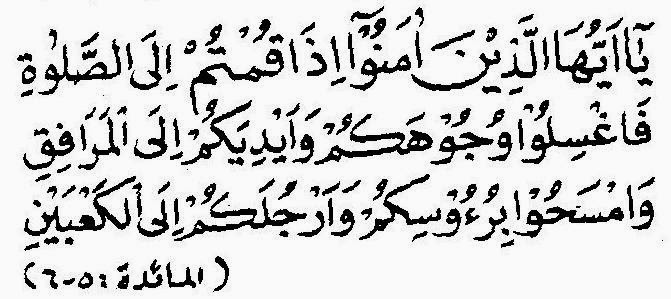 يَآاَيُّهَا الَّذِيْنَ اٰمَنُوْآ اِذَا قُمْتُمْ اِلَى الصَّلٰوةِ
فَاغْسِلُوْا وُجُوْهَكُمْ وَاَيْدِيَكُمْ اِلَى الْمَرَافِقِ
وَامْسَحُوْا بِرُءُوْسِكُمْ وَاَرْجُلَكُمْ اِلَى الْكَعْبَيْنِ
(المائدة : ٥-٦)